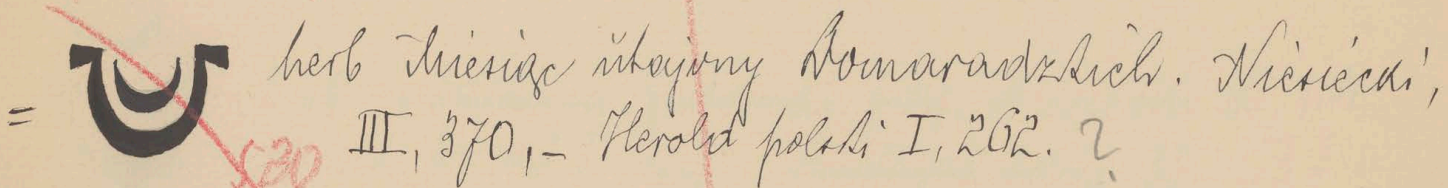 = herb Miesiąc utajony Domaradzkich. Niesiecki,
III, 370,- Herold polski I, 262. ?
530